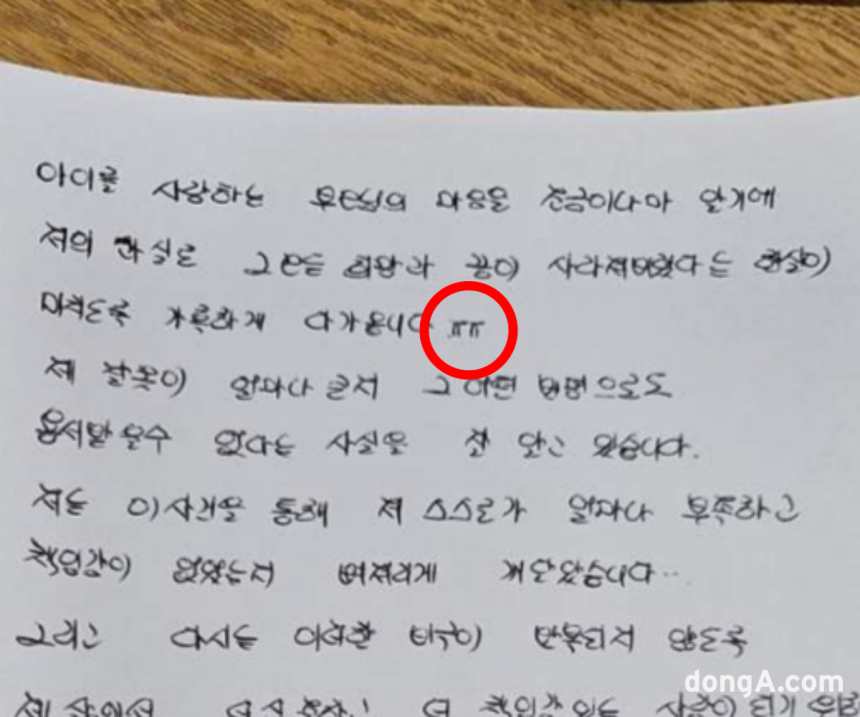 아이를 사랑하는 부모님의 마음을 조금이나마 알기에
저의 과실로 그 모든 희망과 꿈이 사라져버렸다는 현실이
미치도록 가혹하게 다가옵니다 ㅠㅠ
제 잘못이 얼마나 큰지 그 어떤 방법으로도
용서받을수 없다는 사실을 잘 알고 있습니다.
저는 이 사건을 통해 저 스스로가 얼마나 부족하고
책임감이 없었는지 뼈저리게 깨달았습니다...
그리고 다시는 이러한 비극이 반복되지 않도록
dongA.com
제 더 책임감 있는 사람이 되기 위해